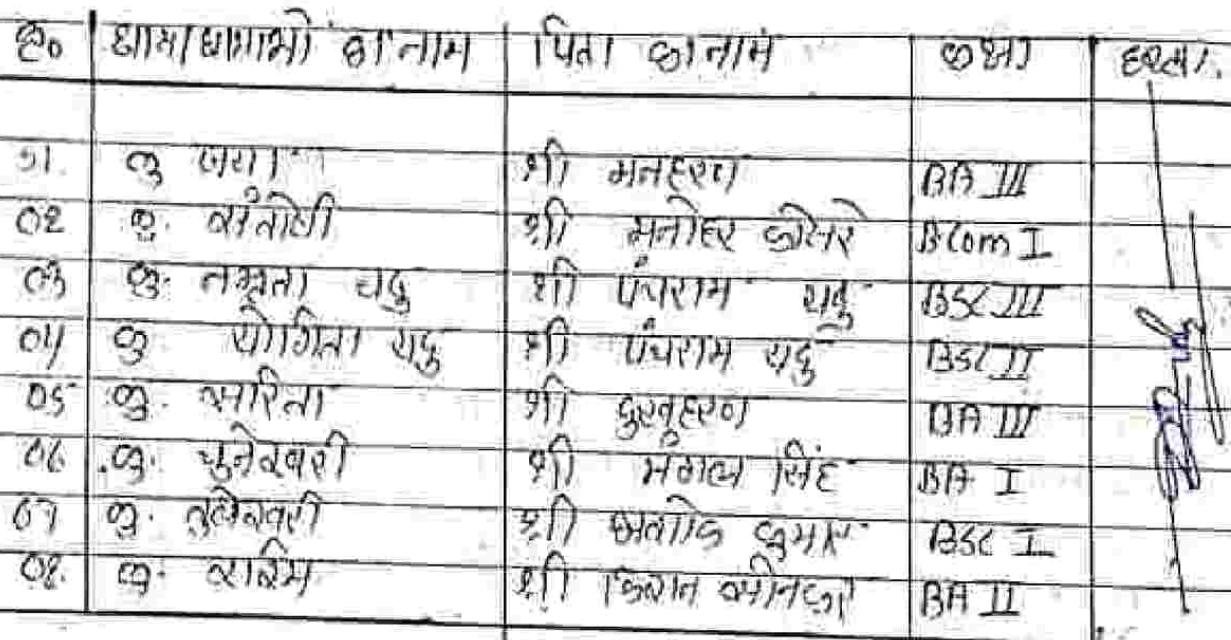 क्र० छात्र/छात्राओं का नाम पिता का नाम कक्षा हस्ता.
01. कु जया श्री मनहरण BA III
02 कु. संतोषी श्री मनोहर कोसरे B.Com I
03 कु. नम्रता यदु श्री पंचराम यदु BSC III
04 कु योगिता यदु श्री पंचराम यदु BSC II
05 कु. सरिता श्री दुखहरण BA III
06 कु. चुनेश्वरी श्री मंगल सिंह BA I
07 कु. तुलेश्वरी श्री अशोक कुमार BSC I
08. कु. रश्मि श्री किशन सोनकर BA II